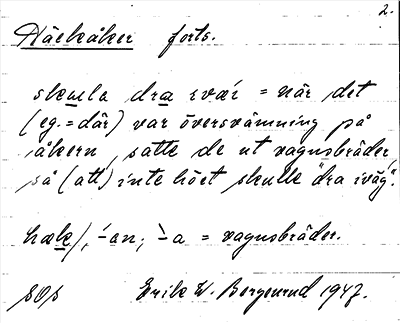 2.
Häckåker forts.
skulla dra ivär = när det
(eg. = där) var översvämning på
åkern, satte de ut vagnsbräder,
så (att) inte höet skulle "dra iväg".
hæk/, -́an; -̀a = vagnsbräder.
SOS Erik W. Bergenrud 1947.